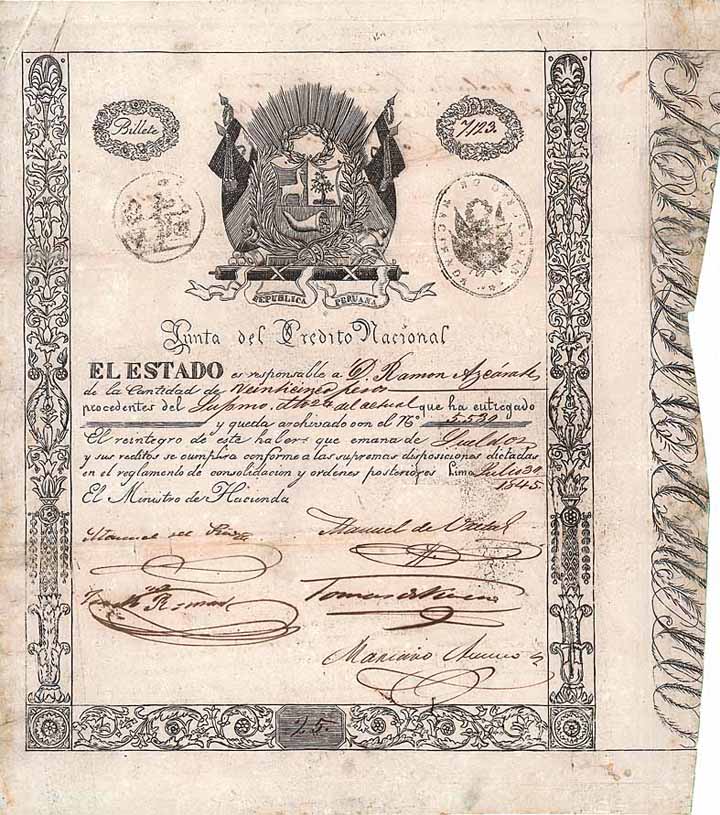 Billete
7123.
REPUBLICA PERUANA
Junta del Credito Nacional
EL ESTADO es responsable a D. Ramon Azcárate
de la Cantidad de Veinticinco pesos
procedentes del Supmo. del actual que ha entregado
y queda archivado con el No 5.530
El reintegro de este valor que emana de Sueldos
y sus reditos se cumplira conforme a las supremas disposiciones dictadas
en el reglamento de consolidacion y ordenes posteriores Lima Julio 30
1845
El Ministro de Hacienda
Manuel del Rio
Manuel de
Tomas de Vivero
Mariano
25.